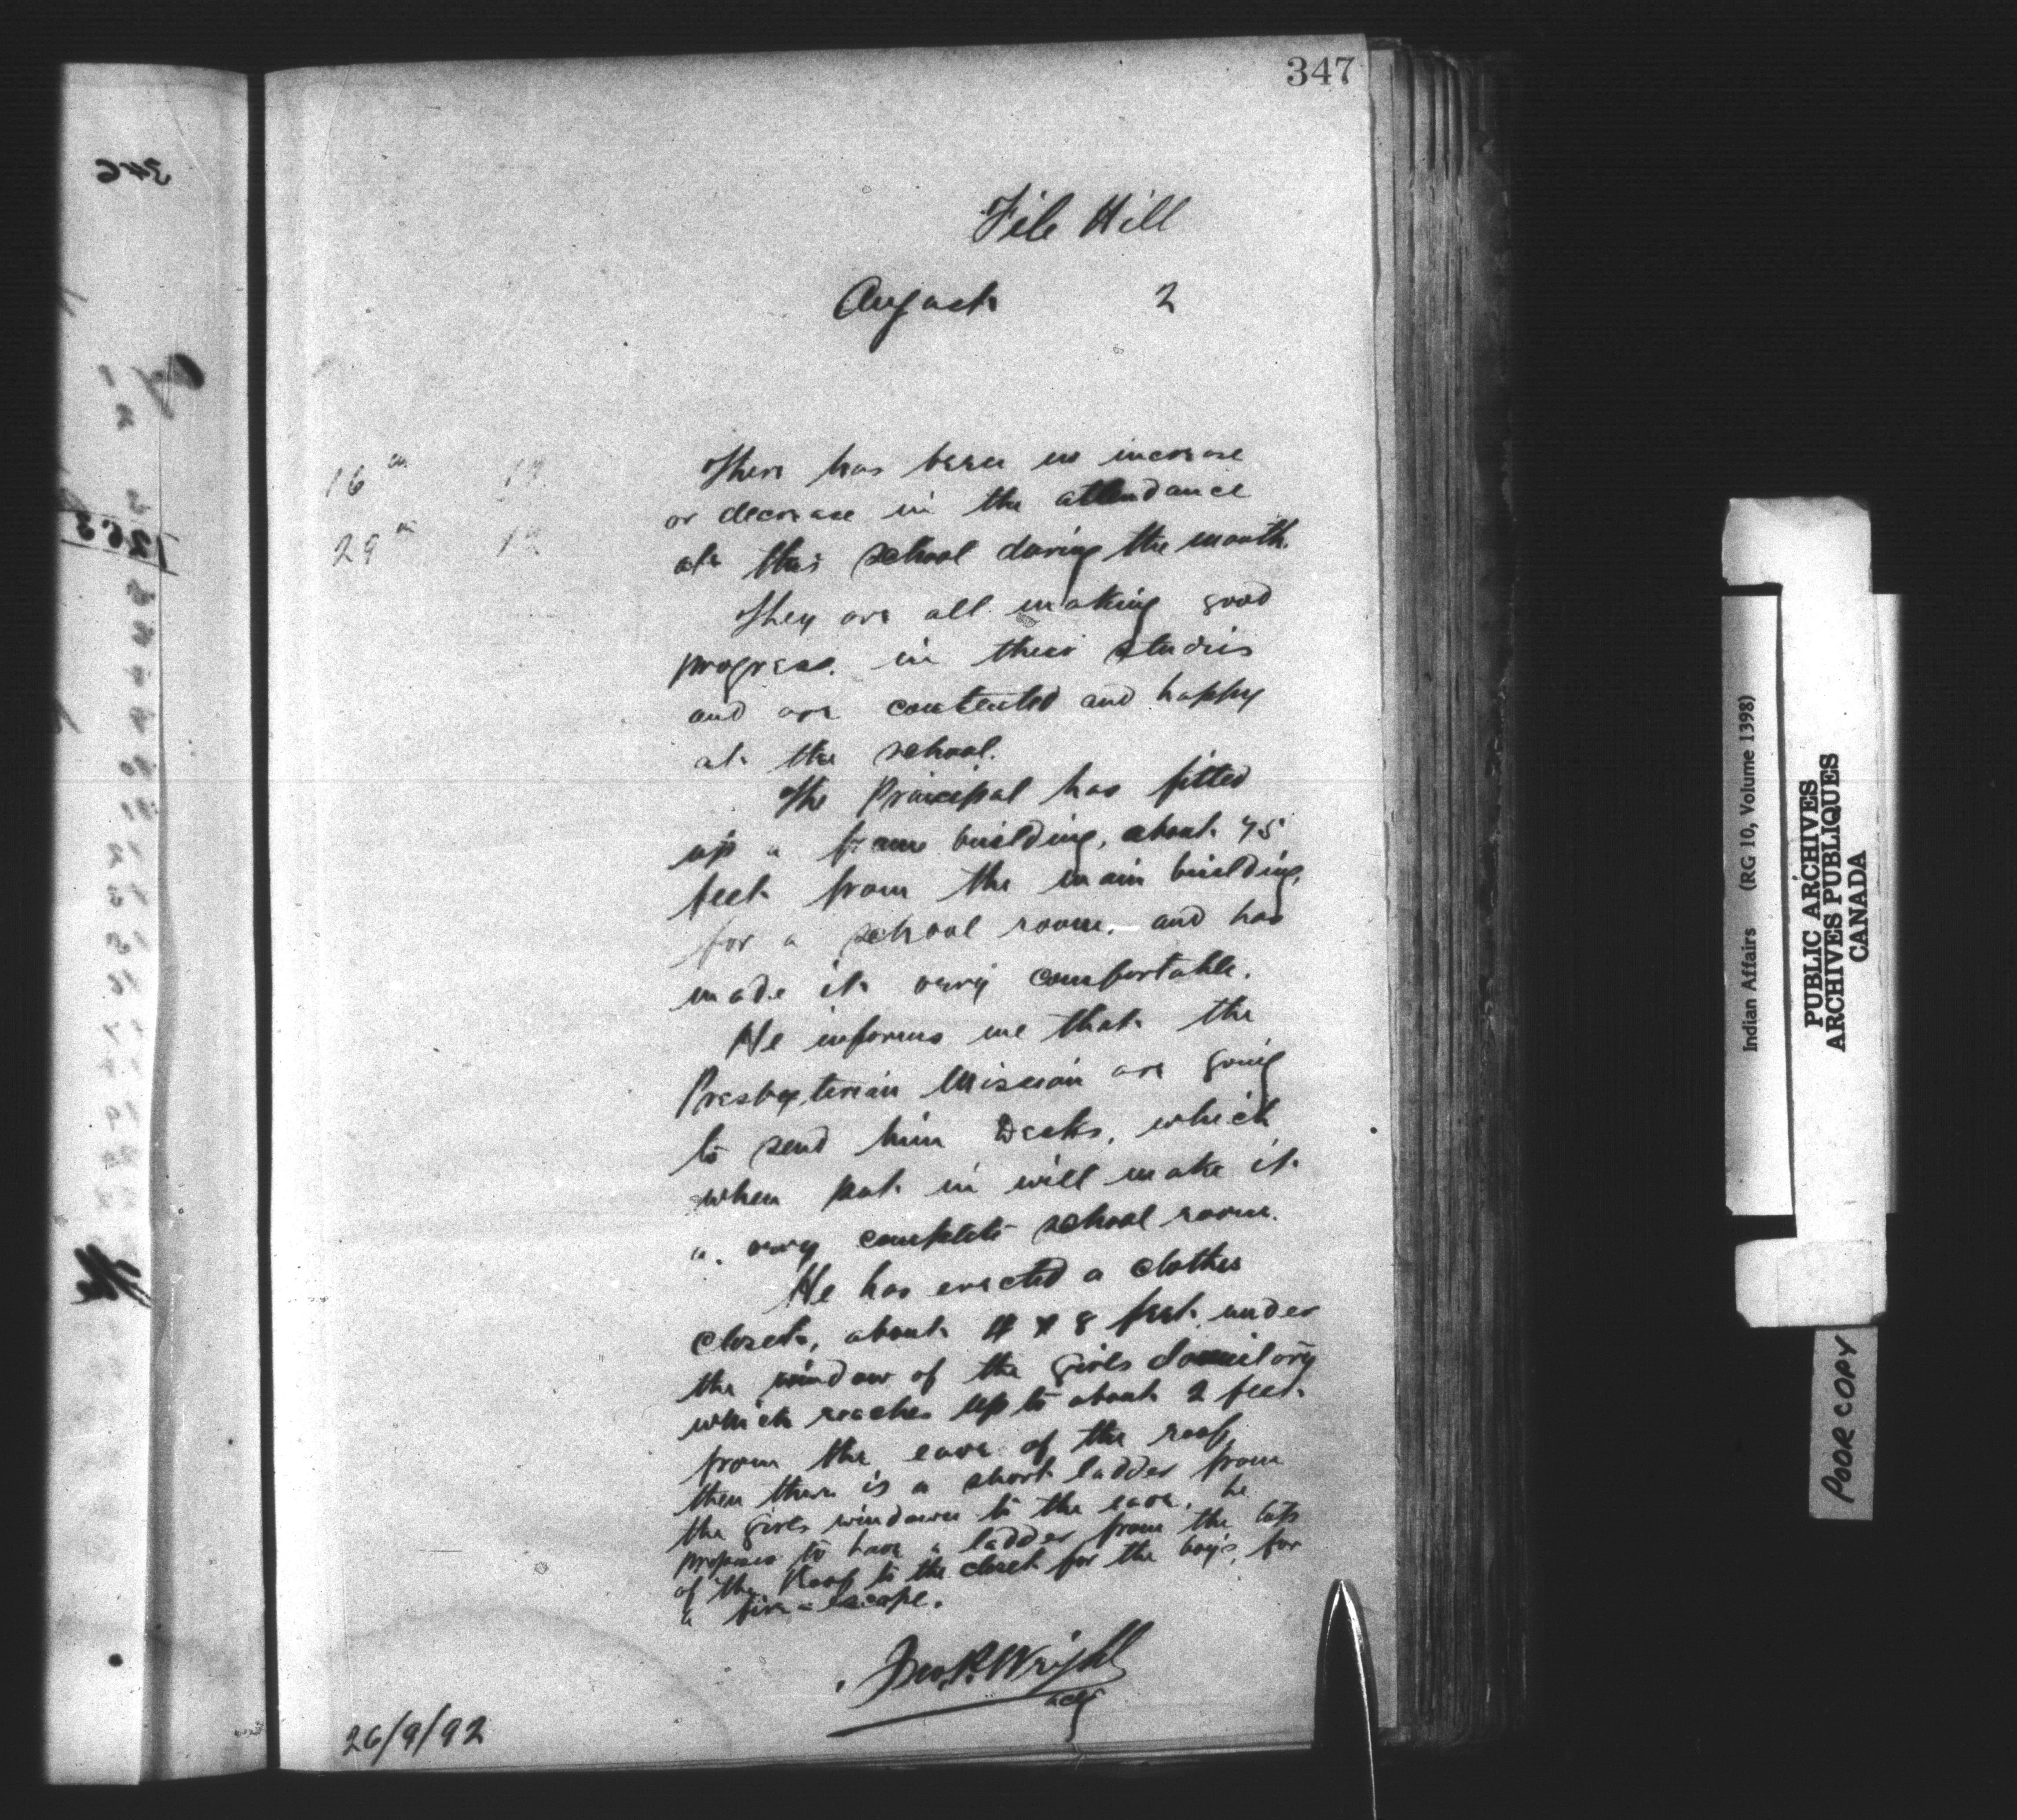 347
File Hill
August 2
16th 12
29th 12
There has been no increase
or decrease in the attendance
at this school during the month.
They are all making good
progress in their studies
and are contented and happy
at the school.
The Principal has fitted
up a frame building, about 45
feet from the main building,
for a school room, and has
made it very comfortable.
He informs me that the
Presbyterian Mission are going
to send him Desks, which
when put in will make it
a very complete school room.
He has erected a clothes
closet, about 4 x 8 feet under
the window of the girls dormitory
which reaches up to about 2 feet
from the eave of the roof,
then there is a short ladder from
the girls windown to the eave, he
proposes to have a ladder from the top
of the Roof to the closet for the boys, for
a fire-escape.
Jno. P. Wright
actg
26/9/92
346
1253
Indian Affairs (RG 10, Volume 1398)
PUBLIC ARCHIVES
ARCHIVES PUBLIQUES
CANADA
POOR COPY